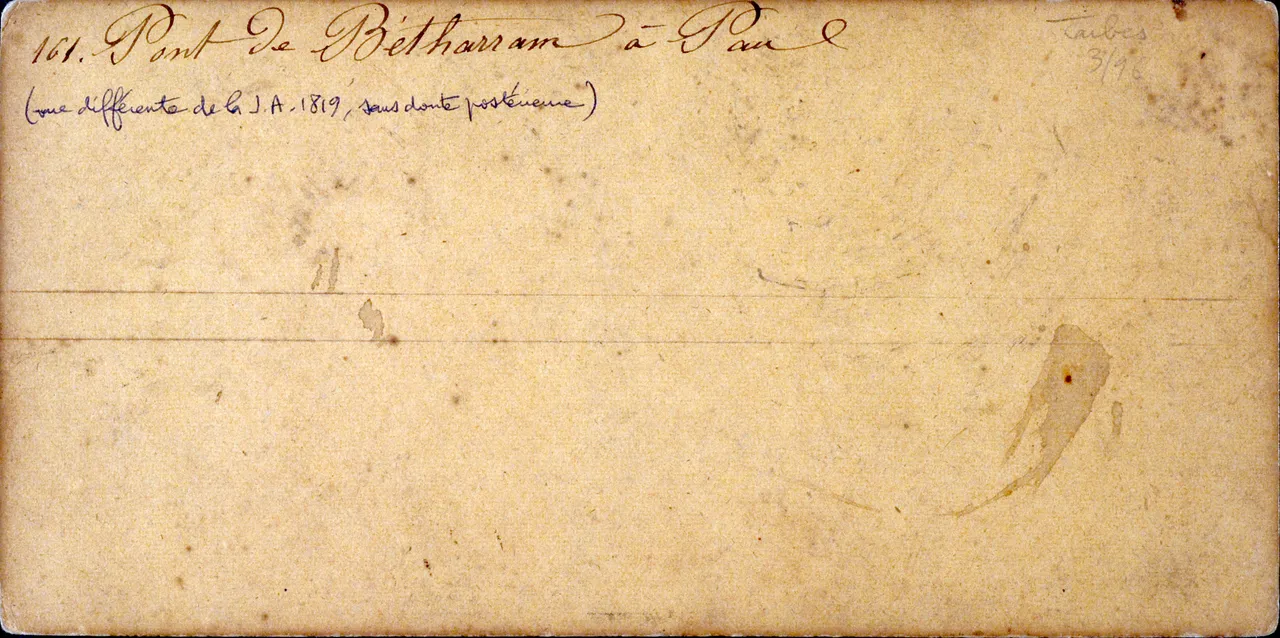 161. Pont de Bétharram à Pau
Tarbes
3/96
(vue différente de la J.A. 1819, sans doute postérieure)